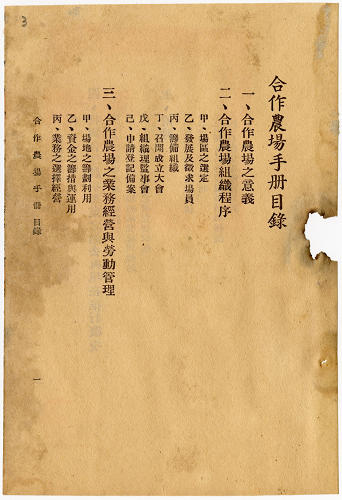 合作農場手册目錄
一、合作農場之意義
二、合作農場組織程序
甲、場區之選定
乙、發展及徵求場員
丙、籌備組織
丁、召開成立大會
戊、組織理監事會
己、申請登記備案
三、合作農場之業務經營與勞動管理
甲、場地之籌劃利用
乙、資金之籌措與運用
丙、業務之選擇經營
合作農場手冊目錄
一
3